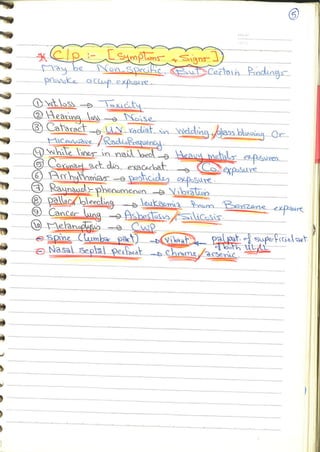 5
* C/P :- [Symptoms + Signs]
May be Non-Specific. But Certain Findings
provoke occup. exposure.
① wt. loss → Toxicity
② Hearing loss → Noise
③ Cataract → U.V radiat. in welding/glass blowing Or
Microwave / Radiofrequency.
④ white lines in nail bed → Heavy metals exposures
⑤ Coronary art. dis. exacerbat. → Co exposure
⑥ Arrhythmias → pesticides exposure
⑦ Raynaud's phenomenon → Vibration
⑧ pallor/bleeding → leukaemia from Benzene exposure
⑨ Cancer lung → Asbestosis/Silicosis
⑩ Melanoptysis → CWP
Spine (lumbar part) → vibrat. palpat. of superficial art
of both UL/LL
Nasal septal perforat → chrome/arsenic